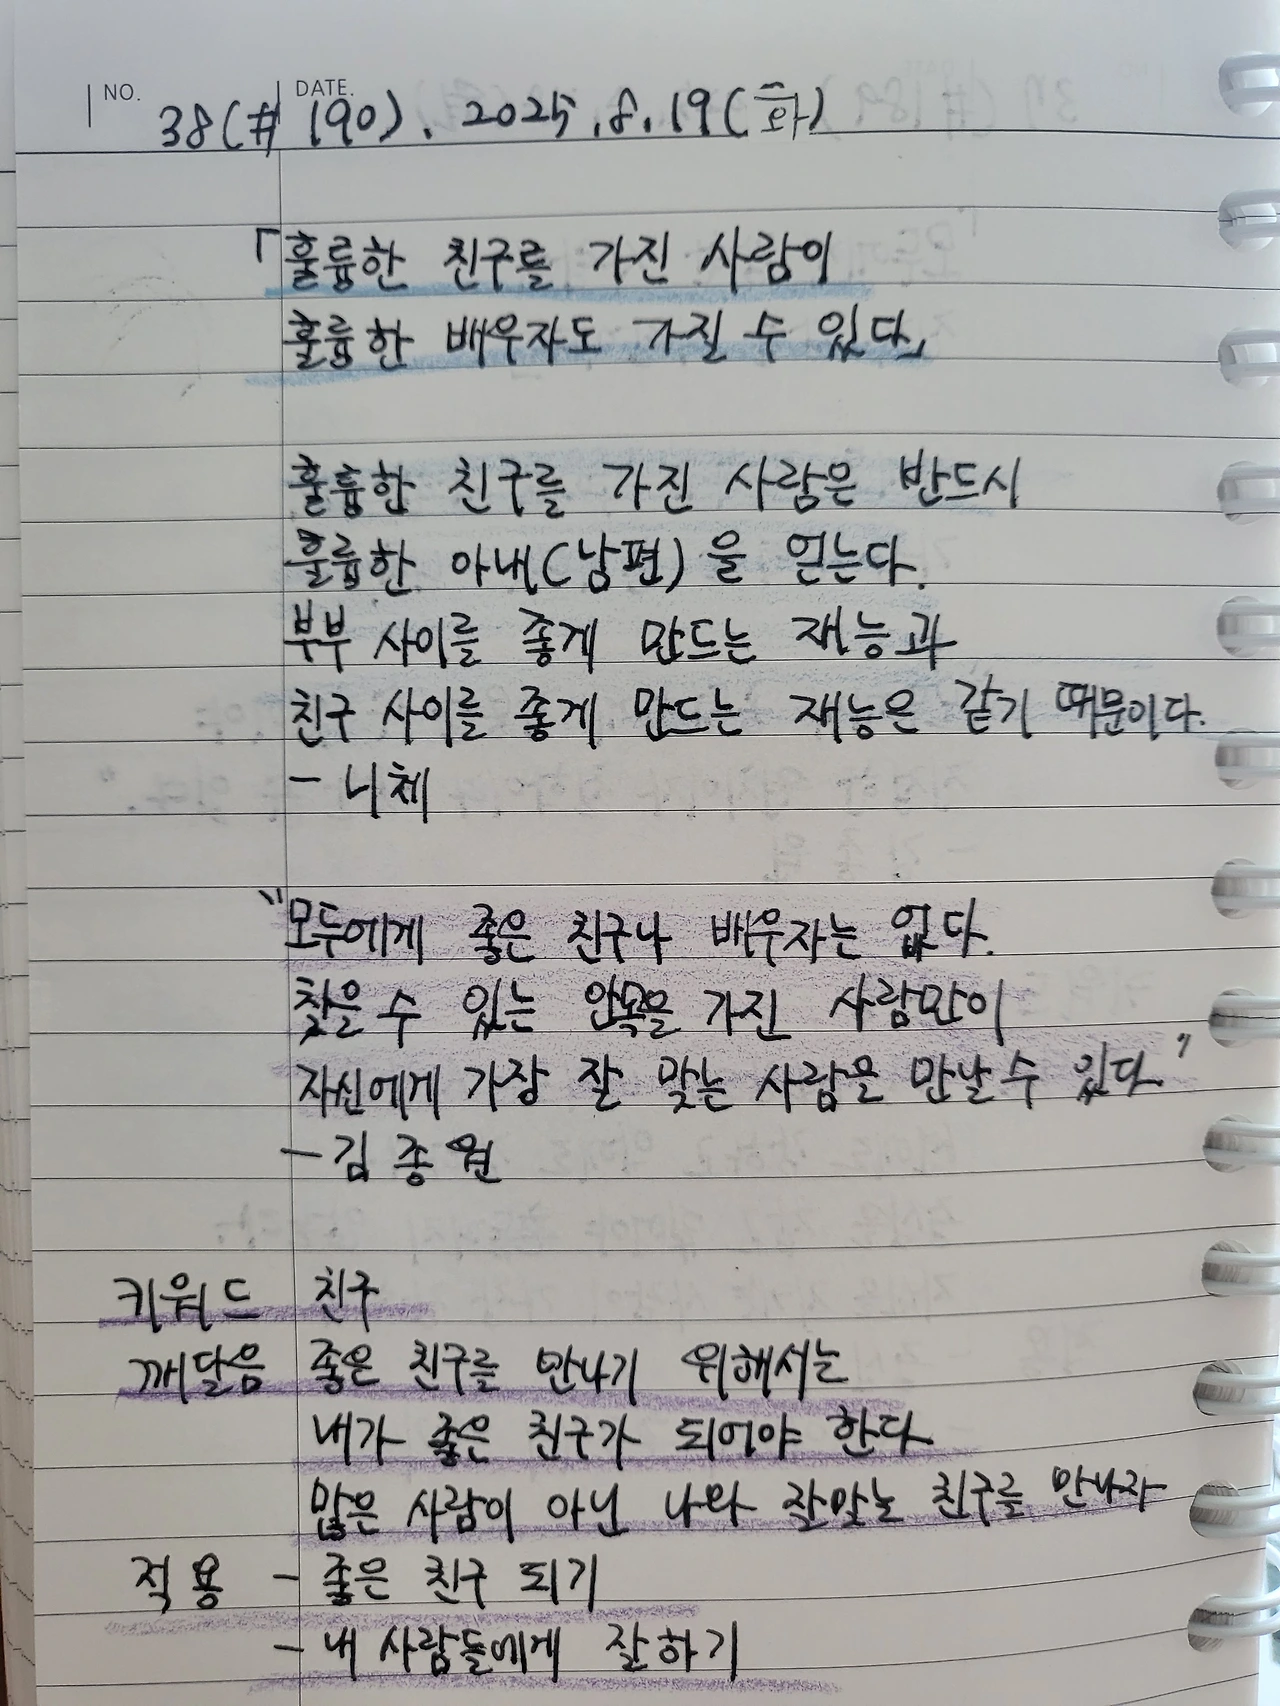 NO. DATE.
38(# 190). 2025.8.19(화)
「훌륭한 친구를 가진 사람이
훌륭한 배우자도 가질 수 있다」
훌륭한 친구를 가진 사람은 반드시
훌륭한 아내(남편)을 얻는다.
부부 사이를 좋게 만드는 재능과
친구 사이를 좋게 만드는 재능은 같기 때문이다.
- 니체
"모두에게 좋은 친구나 배우자는 없다.
찾을 수 있는 안목을 가진 사람만이
자신에게 가장 잘 맞는 사람을 만날 수 있다"
- 김종원
키워드 친구
깨달음 좋은 친구를 만나기 위해서는
내가 좋은 친구가 되어야 한다
많은 사람이 아닌 나와 잘맞는 친구를 만나자
적용 - 좋은 친구 되기
- 내 사람들에게 잘하기